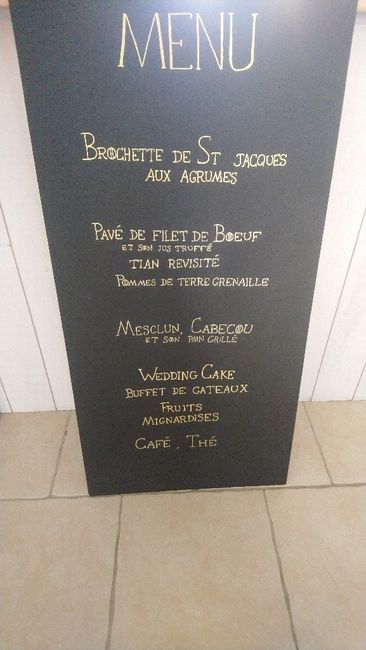 MENU
BROCHETTE DE ST JACQUES
AUX AGRUMES
PAVÉ DE FILET DE BOEUF
ET SON JUS TRUFFÉ
TIAN REVISITÉ
POMMES DE TERRE GRENAILLE
MESCLUN, CABECOU
ET SON PAIN GRILLÉ
WEDDING CAKE
BUFFET DE GATEAUX
FRUITS
MIGNARDISES
CAFÉ, THÉ